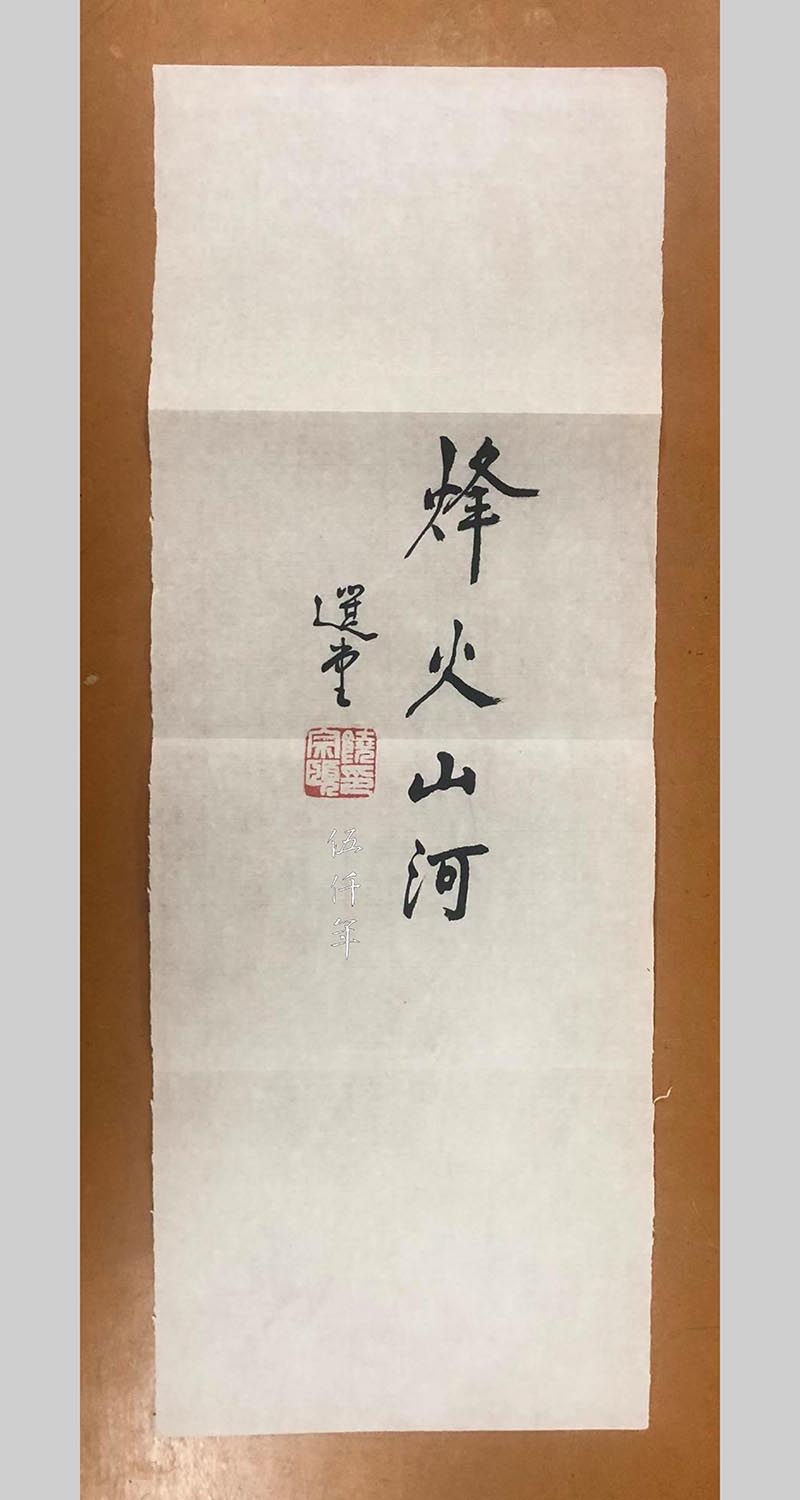 烽火山河
選堂
饒宗頤印
伍仟年